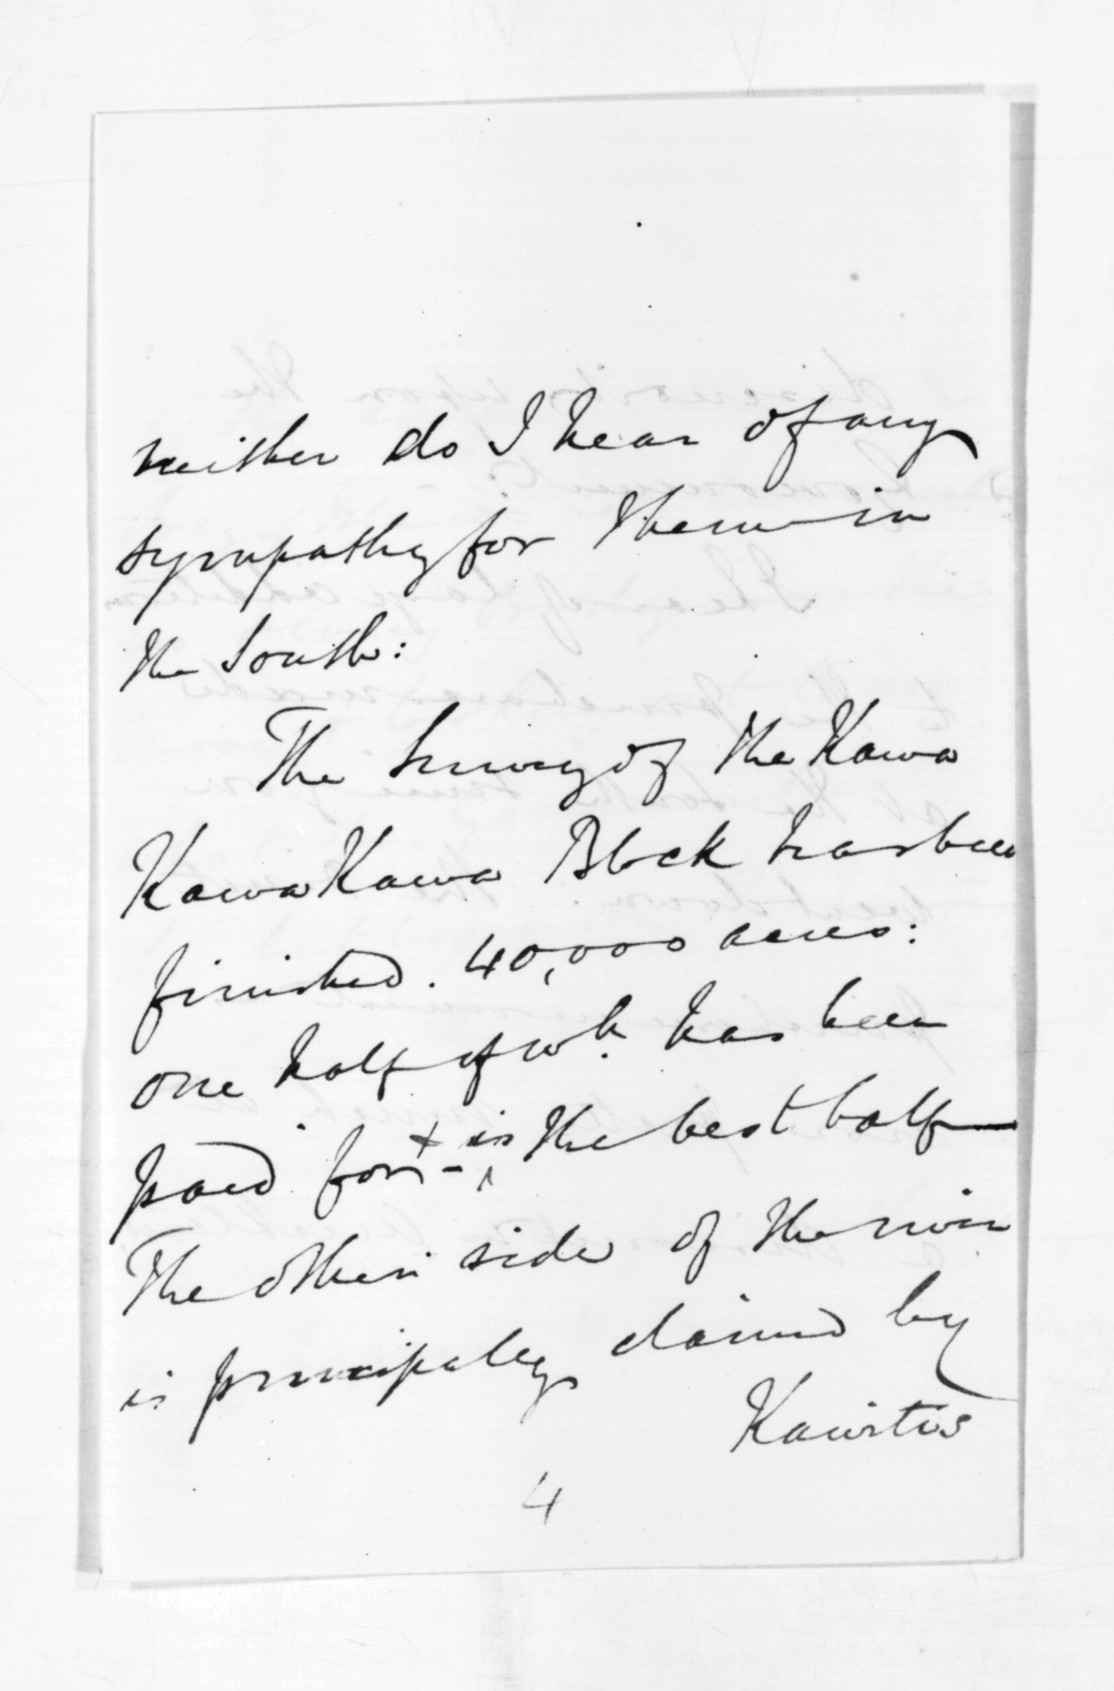 neither do I hear of any
sympathy for them in
the South:
The Survey of the Kawa
Kawa Kawa Block has been
finished. 40,000 acres:
one half of wh. has been
paid for + - is the best half
The other side of the river
is principally claimed by
4